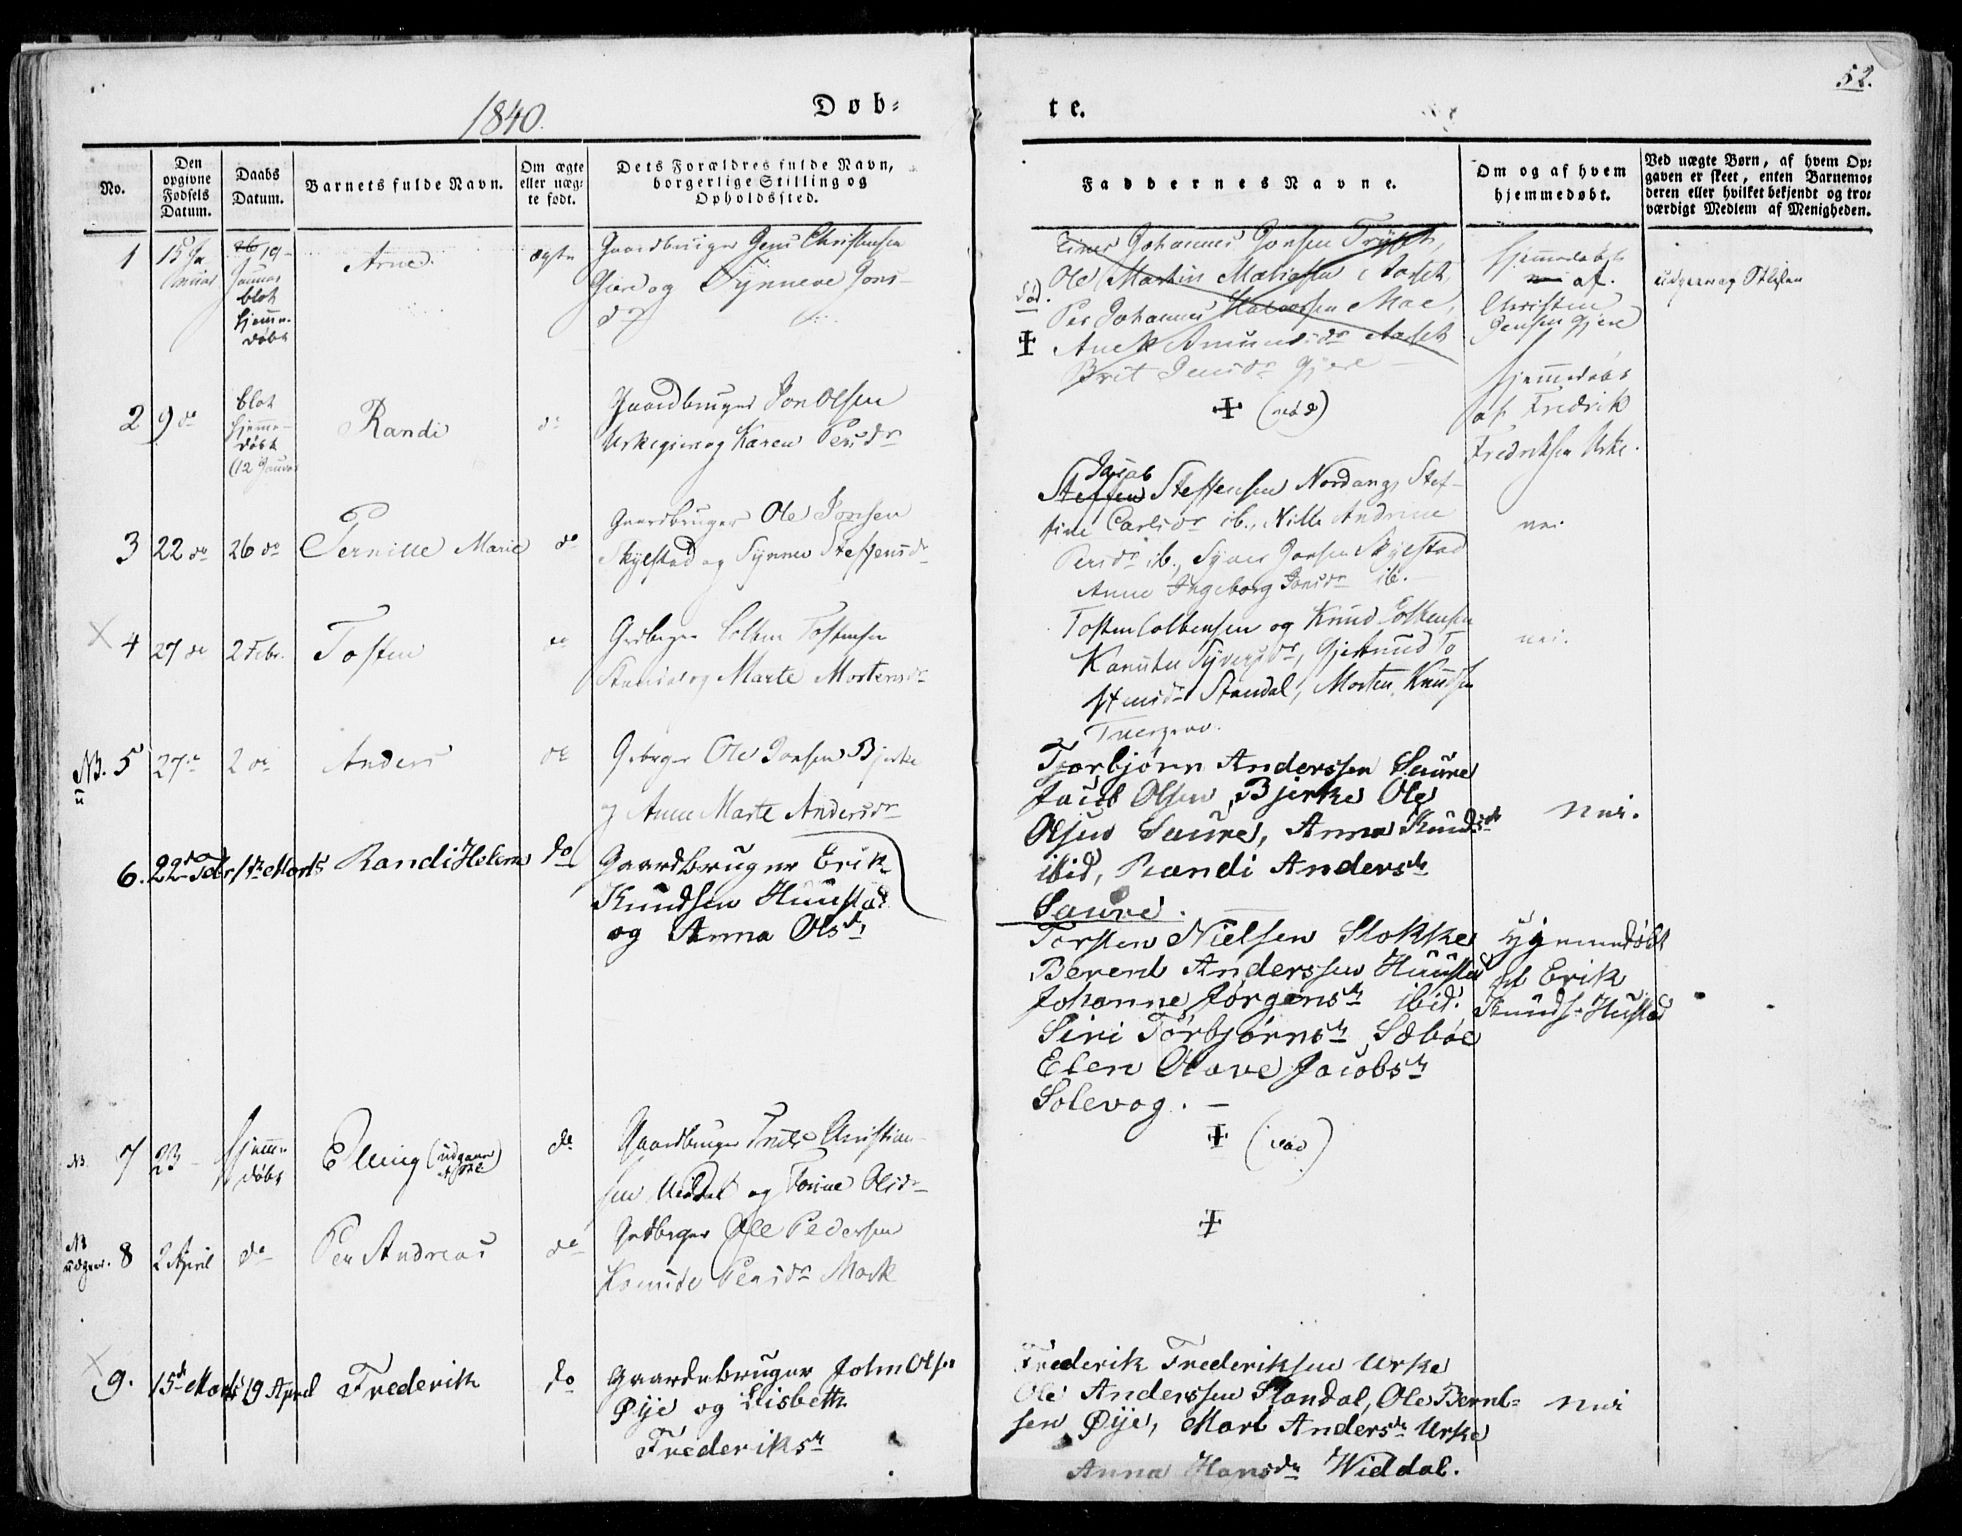 1840.
Døb=
te.
52.
No.
Den opgivne Fødsels Datum.
Daabs Datum.
Barnets fulde Navn.
Om ægte eller uæg= te født.
Dets Forældres fulde Navn, borgerlige Stilling og Opholdssted.
Faddernes Navne.
Om og af hvem hjemmedøbt.
Ved uægte Børn, af hvem Op= gaven er skeet, enten Barnemo= deren eller hvilket bekjendt og tro= værdigt Medlem af Menigheden.
1
15 Ja
19
Januar
blot
hjemme
døbt
Arne
ægte
Gaardbruger Jens Christensen
og Synneve Jons
dr
Johannes Jonsen
Ole Martin Mathiasen Aarset
Per Johannes Halvorsen Moe,
Anek Amunds dr Aarset
Brit Jensdr Gjere
død.
Hjemmedøbt
af
Christen
Jensen Gjere
2
9 do
blot
hjemme-
døbt
(12 Januar
Randi
do
Gaardbruger Jon Olsen
Urkegjere og Karen Persdr
(nød)
hjemmedøbt
af Fredrik
Fredriksen Urke.
3
22 do
26 do
Pernille Marie
do
Gaardbruger Ole Jonsen
Skylstad og Synneve Steffensdr
Jacob
Steffen Steffensen Nordang, Stef-
fine Carlsdr ib., Nille Andrine
Persdr ib., Syver Jonsen Skylstad
Anne Ingeborg Jonsdr ib.
nei
4
27 do
2 Febr.
Tosten
do
Gdbruger Colben Tostensen
Standal og Marte Mortensdr
Tosten Colbensen og Knud Colbensen
Karnuten Syversdr, Gjertrud To
stensdr Standal, Morten Knudsen
nei.
NB. 5
27 do
2 do
Anders
do
Gdbruger Ole Jonsen Bjerke
og Anne Marte Andersdr
Torbjørn Anderssen Saure
Jacob Olsen Bjerke Ole
Olsen Saure, Anna Knudsdr
ibid, Randi Andersdr
Saure.
nei.
6.
22de Febr
1ste Marts
Randi Helene
do
Gaardbruger Erik
Knudsen Huustad
og Anna Olsdr
Torsten Nielsen Stokke
Berend Anderssen Huustad
Johanne Jørgensdr ibid.
Siri Torbjørnsdr Sæbøe
Elen Olave Jacobsdr
Solevog. —
Hjemmedøbt
af Erik
Knuds. Hustad
NB 7
23
hjemme
døbt
Elling (udgaaer
do
Gaardbruger Christian
sen Viddal og Olsdr
(nød)
NB
8
2 April
do
Per Andreas
do
Gdbruger Ole Pedersen
Knude Persdr Mork
9.
15de Marts
19 April
Frederik
do
Gaardebruger John Olsen
Øije og Lisbeth
Frederiksdr
Frederik Frederiksen Urke
Ole Anderssen Standal, Ole Bernt=
sen Øije, Mart Andersdr Urke
Anna Hansdr Widdal.
nei